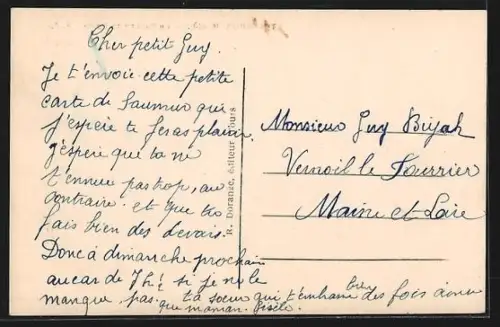 Cher petit Guy.
Je t'envoie cette petite
carte de Saumur qui
j'espère te feras plaisir.
J'espère que tu ne
t'ennuie pas trop, au
contraire. et que tu
fais bien des devoirs.
Donc à dimanche prochain
au car de 7h¼ si je ne le
manque pas. ta soeur qui t'embrasse bien des fois ainsi
que maman. Gisèle.
R. Dorange, éditeur Tours
Monsieur Guy
Vernoil le Fourrier
Maine et Loire